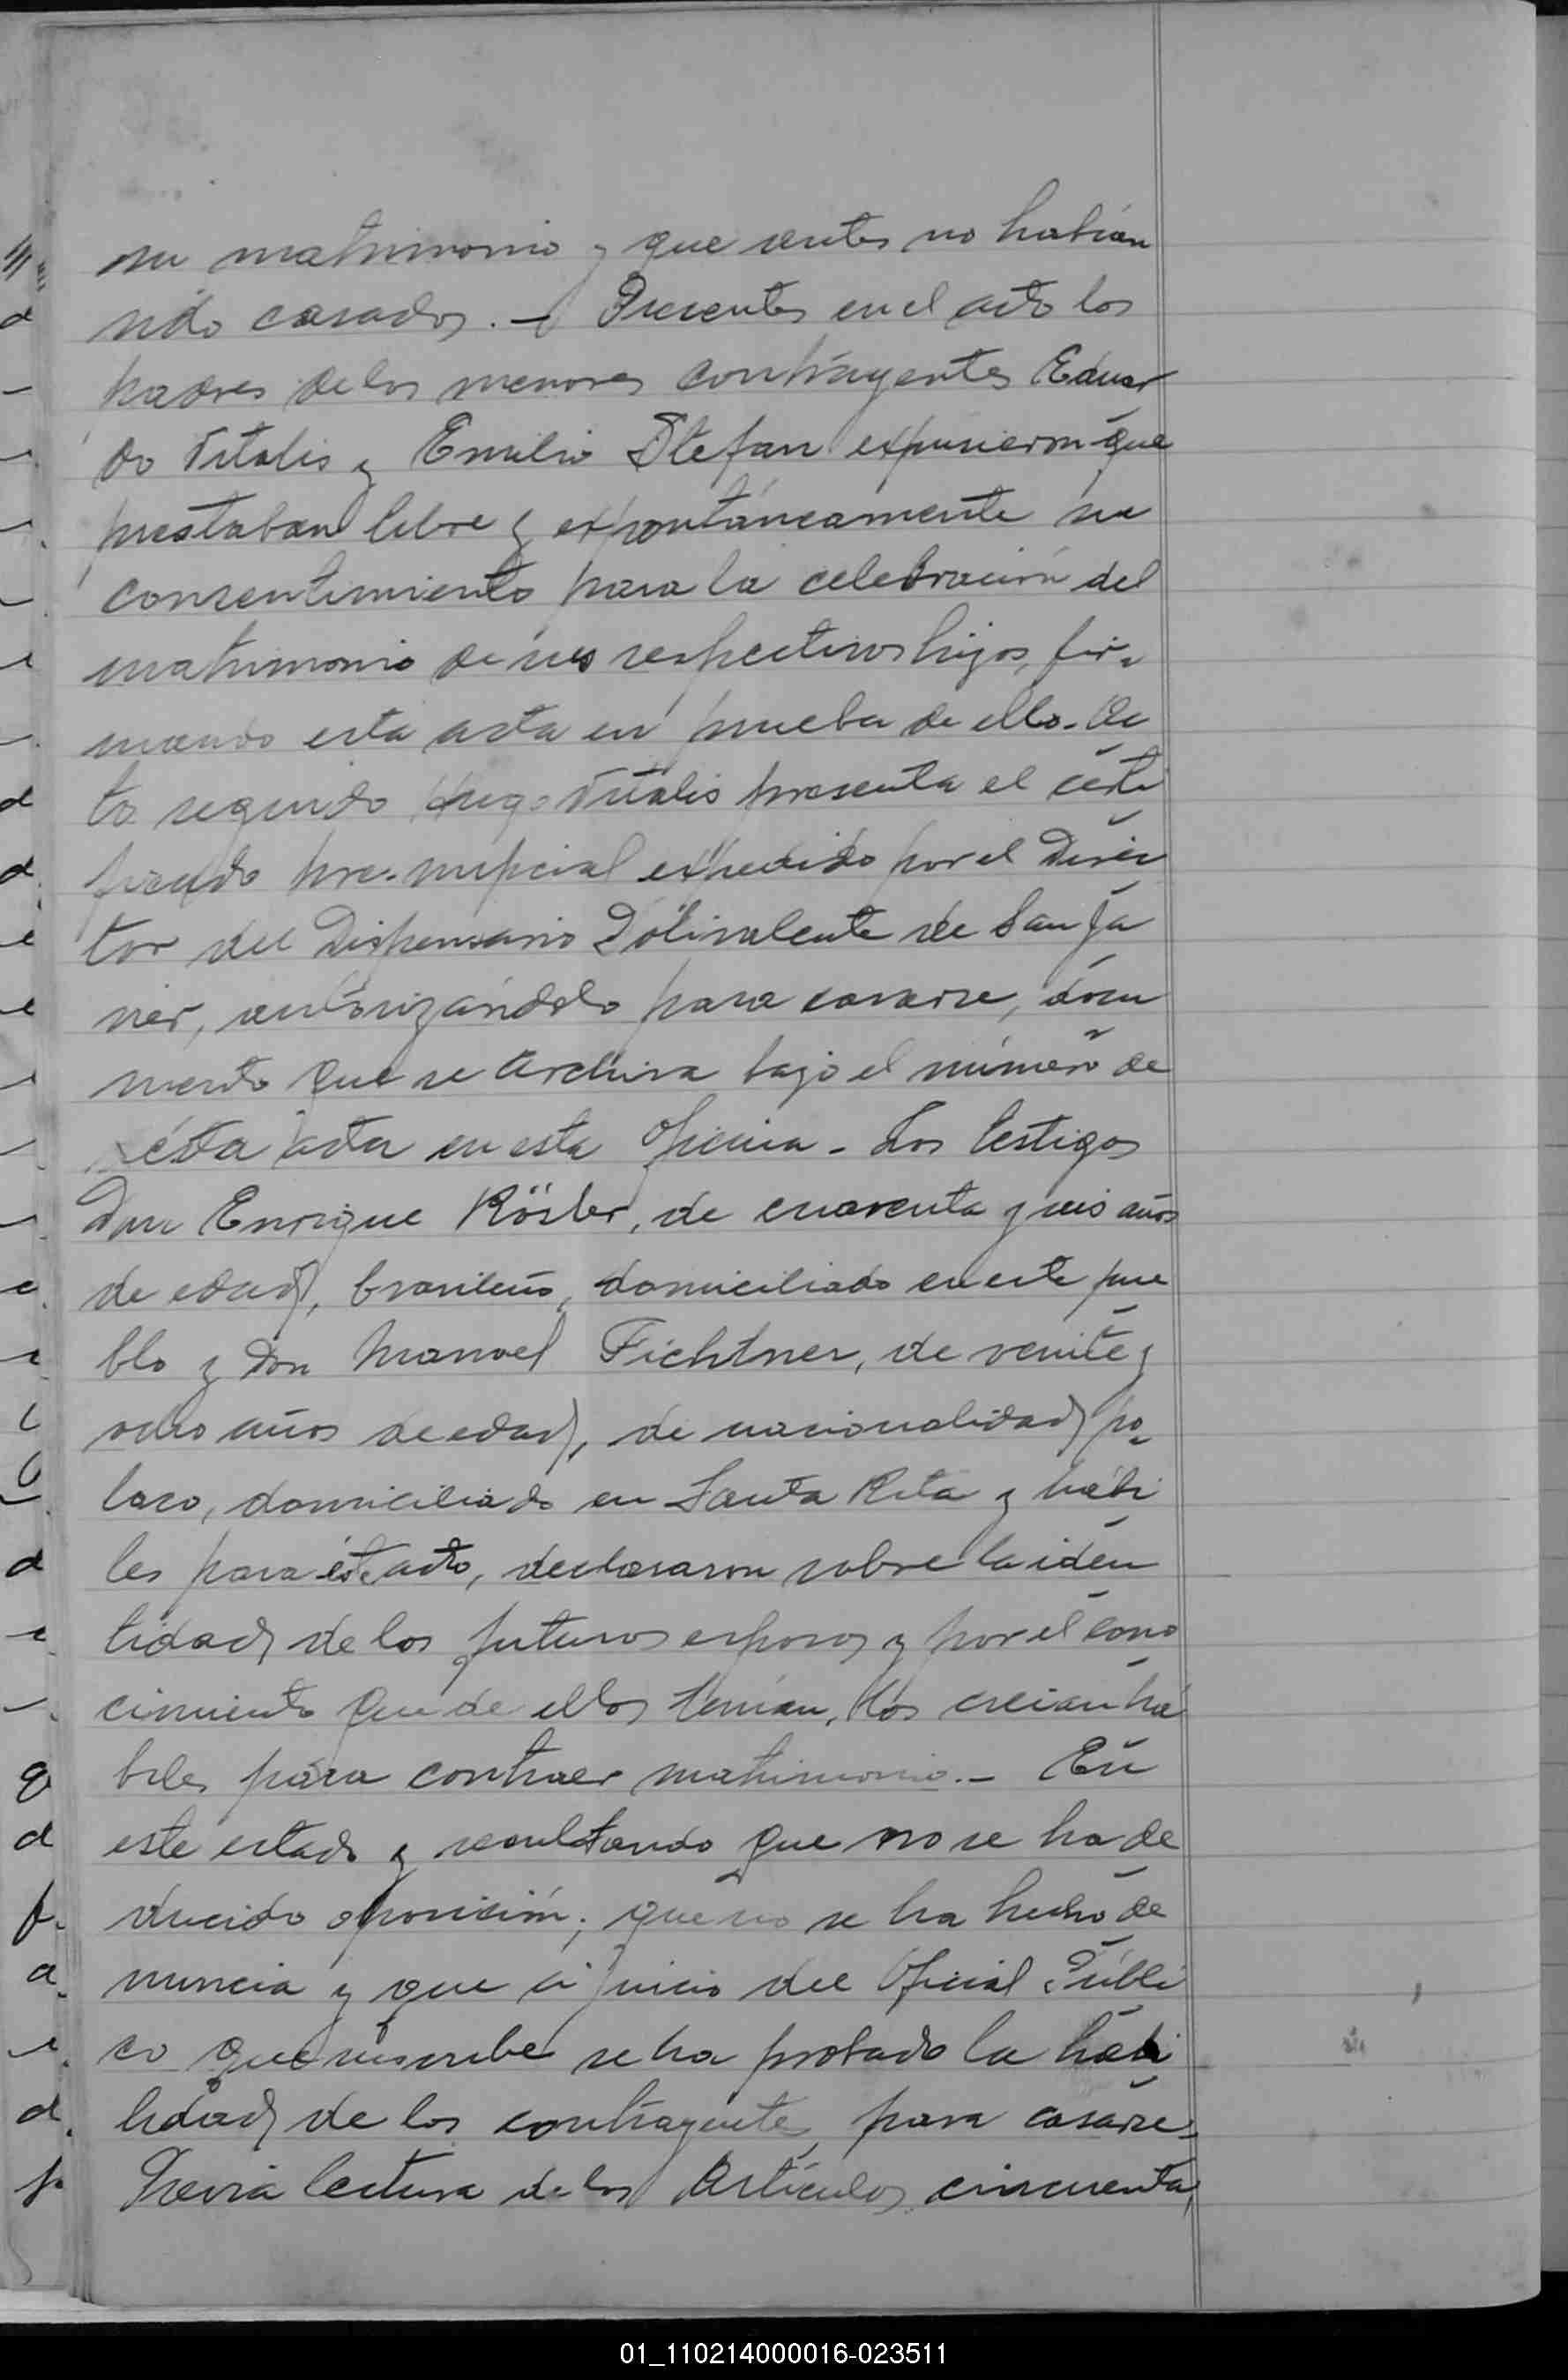 su matrimonio y que antes no habían
sido casados. — Presentes en el acto los
padres de los menores contrayentes Eduar
do Vitalis y Emilio Stefan expusieron que
prestaban libre y expontáneamente su
consentimiento para la celebración del
matrimonio de sus respectivos hijos, fir-
mando esta acta en prueba de ello. Ac
to seguido Hugo Vitalis presenta el certi
ficado pre-nupcial expedido por el Direc
tor del Dispensario Polivalente de San Ja
vier, autorizándolo para casarse, docu
mento que se archiva bajo el número de
ésta acta en esta Oficina. Los testigos
Don Enrique Rösler, de cuarenta y seis años
de edad, brasileño, domiciliado en este pue
blo y Don Manoel Fichtner, de veinte y
ocho años de edad, de nacionalidad po-
laco, domiciliado en Santa Rita y hábi
les para éste acto, declararon sobre la iden
tidad de los futuros esposos y por el cono
cimiento que de ellos tenían, los creían há
biles para contraer matrimonio. — En
este estado y resultando que no se ha de
ducido oposición; que no se ha hecho de
nuncia y que a juicio del Oficial Públi
co que suscribe se ha probado la habi
lidad de los contrayentes para casarse.
Previa lectura de los Artículos cincuenta,
01_110214000016-023511